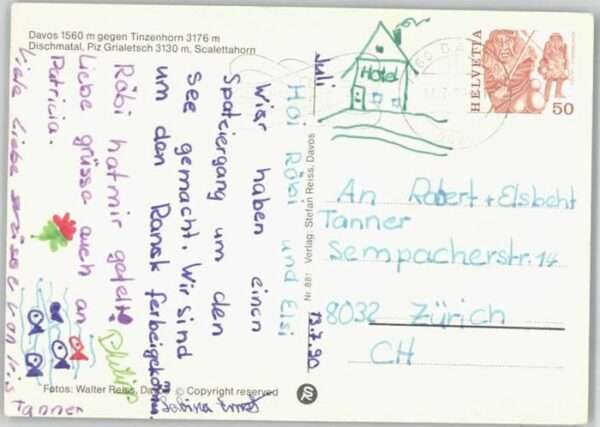 Davos 1560 m gegen Tinzenhorn 3176 m
Dischmatal, Piz Grialetsch 3130 m, Scalettahorn
HELVETIA
50
Hotel
Juli
Hoi Röbi und Elsi
Wier haben einen
Spatziergang um den
See gemacht. Wir sind
um den Ransk ferbeigekomm.
Röbi hat mir gefelt
Liebe grüsse auch an
Patricia.
Philip
liebe
von
Tanner
13.7.90
Nr. 881 Verlag Stefan Reiss, Davos
An Robert + Elsbeht
Tanner
Sempacherstr. 14
8032 Zürich
CH
Fotos: Walter Reiss, Davos © Copyright reserved